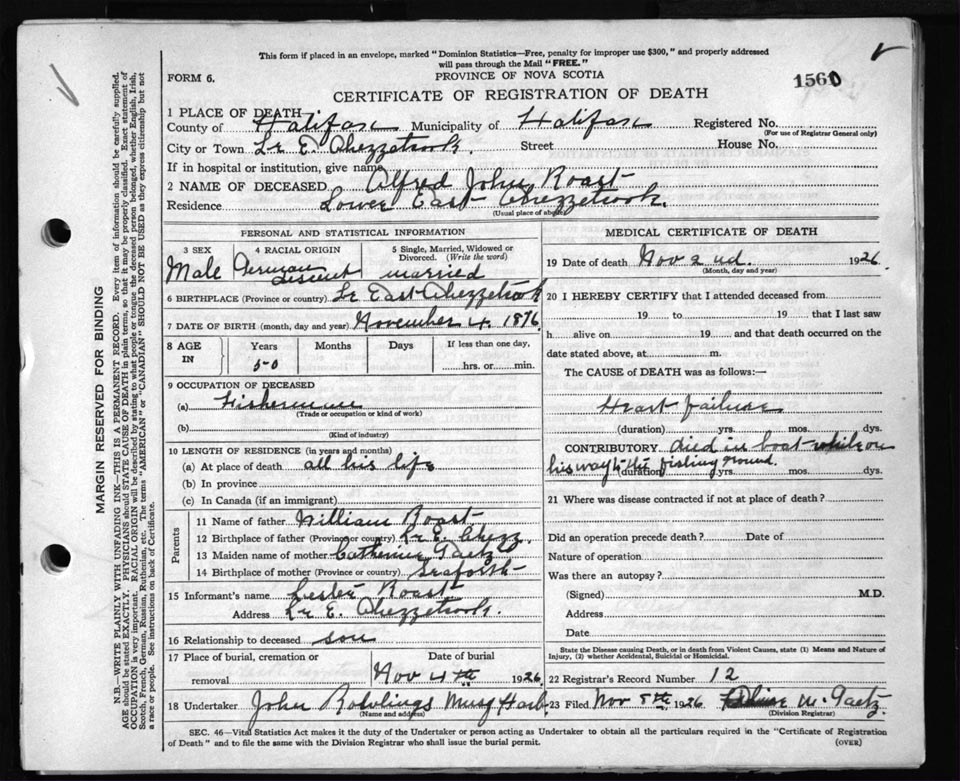 This form if placed in an envelope, marked "Dominion Statistics—Free, penalty for improper use $300," and properly addressed
will pass through the Mail "FREE."
FORM 6.
PROVINCE OF NOVA SCOTIA
1560
CERTIFICATE OF REGISTRATION OF DEATH
1 PLACE OF DEATH
County of Halifax Municipality of Halifax Registered No.
(For use of Registrar General only)
City or Town Lr E. Chezzetcook. Street House No.
If in hospital or institution, give name
2 NAME OF DECEASED Alfred John Roast
Residence Lower East Chezzetcook.
(Usual place of abode)
PERSONAL AND STATISTICAL INFORMATION
3 SEX 4 RACIAL ORIGIN 5 Single, Married, Widowed or Divorced. (Write the word)
Male German Descent married
6 BIRTHPLACE (Province or country) Lr East Chezzetcook
7 DATE OF BIRTH (month, day and year) November 4. 1876
8 AGE IN Years Months Days If less than one day,
50 hrs. or min.
9 OCCUPATION OF DECEASED
(a) Fisherman
(Trade or occupation or kind of work)
(b)
(Kind of industry)
10 LENGTH OF RESIDENCE (in years and months)
(a) At place of death all his life
(b) In province
(c) In Canada (if an immigrant)
Parents
11 Name of father William Roast
12 Birthplace of father (Province or country) Lr E. Chezz.
13 Maiden name of mother Catherine Gaetz
14 Birthplace of mother (Province or country) Seaforth
15 Informant's name Lester Roast
Address Lr E. Chezzetcook.
16 Relationship to deceased son
17 Place of burial, cremation or removal Date of burial
Nov 4th 1926
18 Undertaker John Rowlings Musq Harb.
(Name and address)
MEDICAL CERTIFICATE OF DEATH
19 Date of death Nov 2nd. 1926.
(Month, day and year)
20 I HEREBY CERTIFY that I attended deceased from
19 to 19 that I last saw
h alive on 19 and that death occurred on the
date stated above, at m.
The CAUSE of DEATH was as follows:—
Heart failure
(duration) yrs. mos. dys.
CONTRIBUTORY died in boat while on
his way to the fishing ground.
(duration) yrs. mos. dys.
21 Where was disease contracted if not at place of death?
Did an operation precede death? Date of
Nature of operation
Was there an autopsy?
(Signed) M.D.
Address
Date
State the Disease causing Death, or in death from Violent Causes, state (1) Means and Nature of
Injury, (2) whether Accidental, Suicidal or Homicidal.
22 Registrar's Record Number 12
23 Filed Nov 8th 1926 W. Gaetz.
(Division Registrar)
SEC. 46—Vital Statistics Act makes it the duty of the Undertaker or person acting as Undertaker to obtain all the particulars required in the "Certificate of Registration
of Death" and to file the same with the Division Registrar who shall issue the burial permit.
(OVER)
MARGIN RESERVED FOR BINDING
N.B.—WRITE PLAINLY WITH UNFADING INK—THIS IS A PERMANENT RECORD. Every item of information should be carefully supplied.
AGE should be stated EXACTLY. PHYSICIANS should STATE CAUSE OF DEATH in plain terms, so that it may be properly classified. Exact statement of
OCCUPATION is very important. RACIAL ORIGIN will be described by stating to what people or tongue the deceased person belonged, whether English, Irish,
Scotch, French, German, Russian, Ruthenian, etc. The terms "AMERICAN" or "CANADIAN" SHOULD NOT BE USED as they express citizenship but not
a race or people. See instructions on back of Certificate.